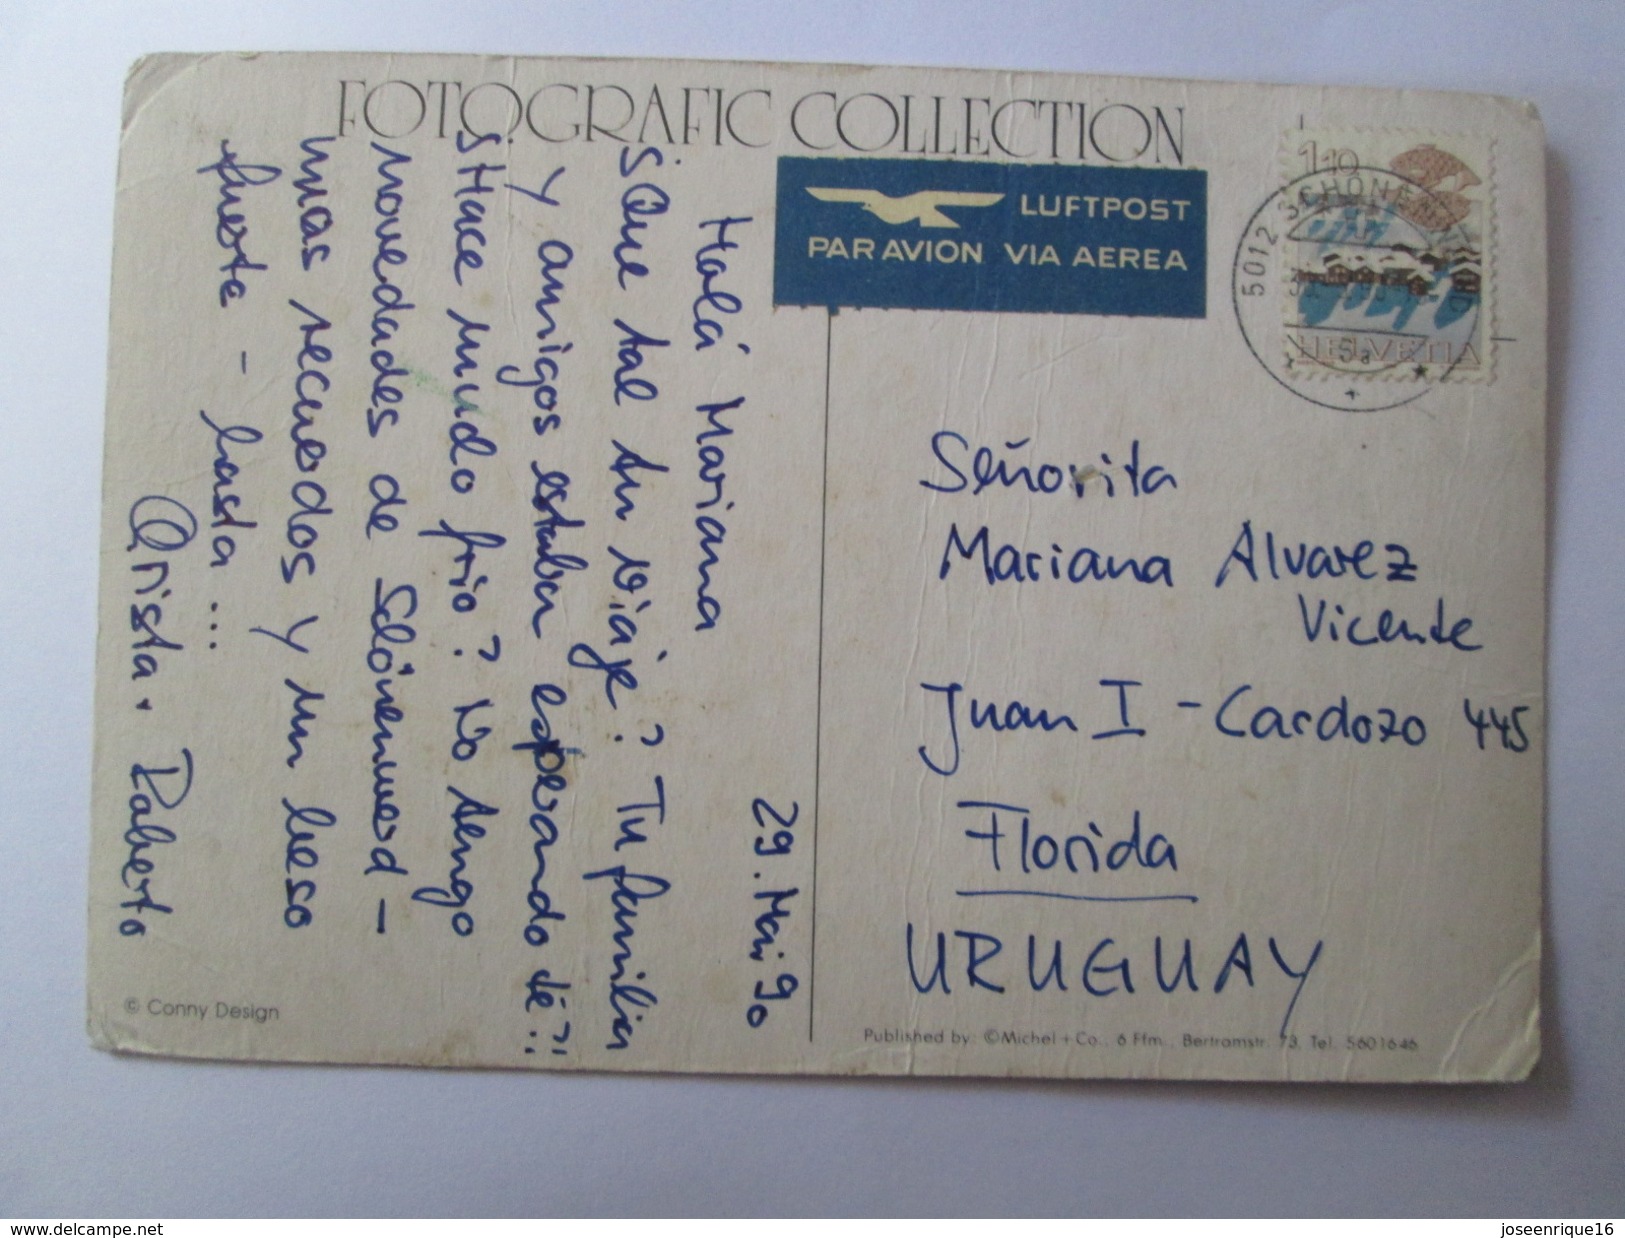 FOTOGRAFIC COLLECTION
LUFTPOST
PAR AVION VIA AEREA
1 10
HELVETIA
5012
29. Mai 90
Holá Mariana
¡Que tal tu viaje? Tu familia
y amigos estaban esperando té?!
Hace mudo frio? No tengo
novedades de Schönenwerd -
unas recuerdos y un beso
fuerte - hasta ...
Christa + Roberto
Señorita
Mariana Alvarez
Vicente
Juan I - Cardozo 445
Florida
URUGUAY
© Conny Design
Published by: ©Michel + Co., 6 Ffm., Bertramstr. 73, Tel. 5601646
delcampe.net
joseenrique16